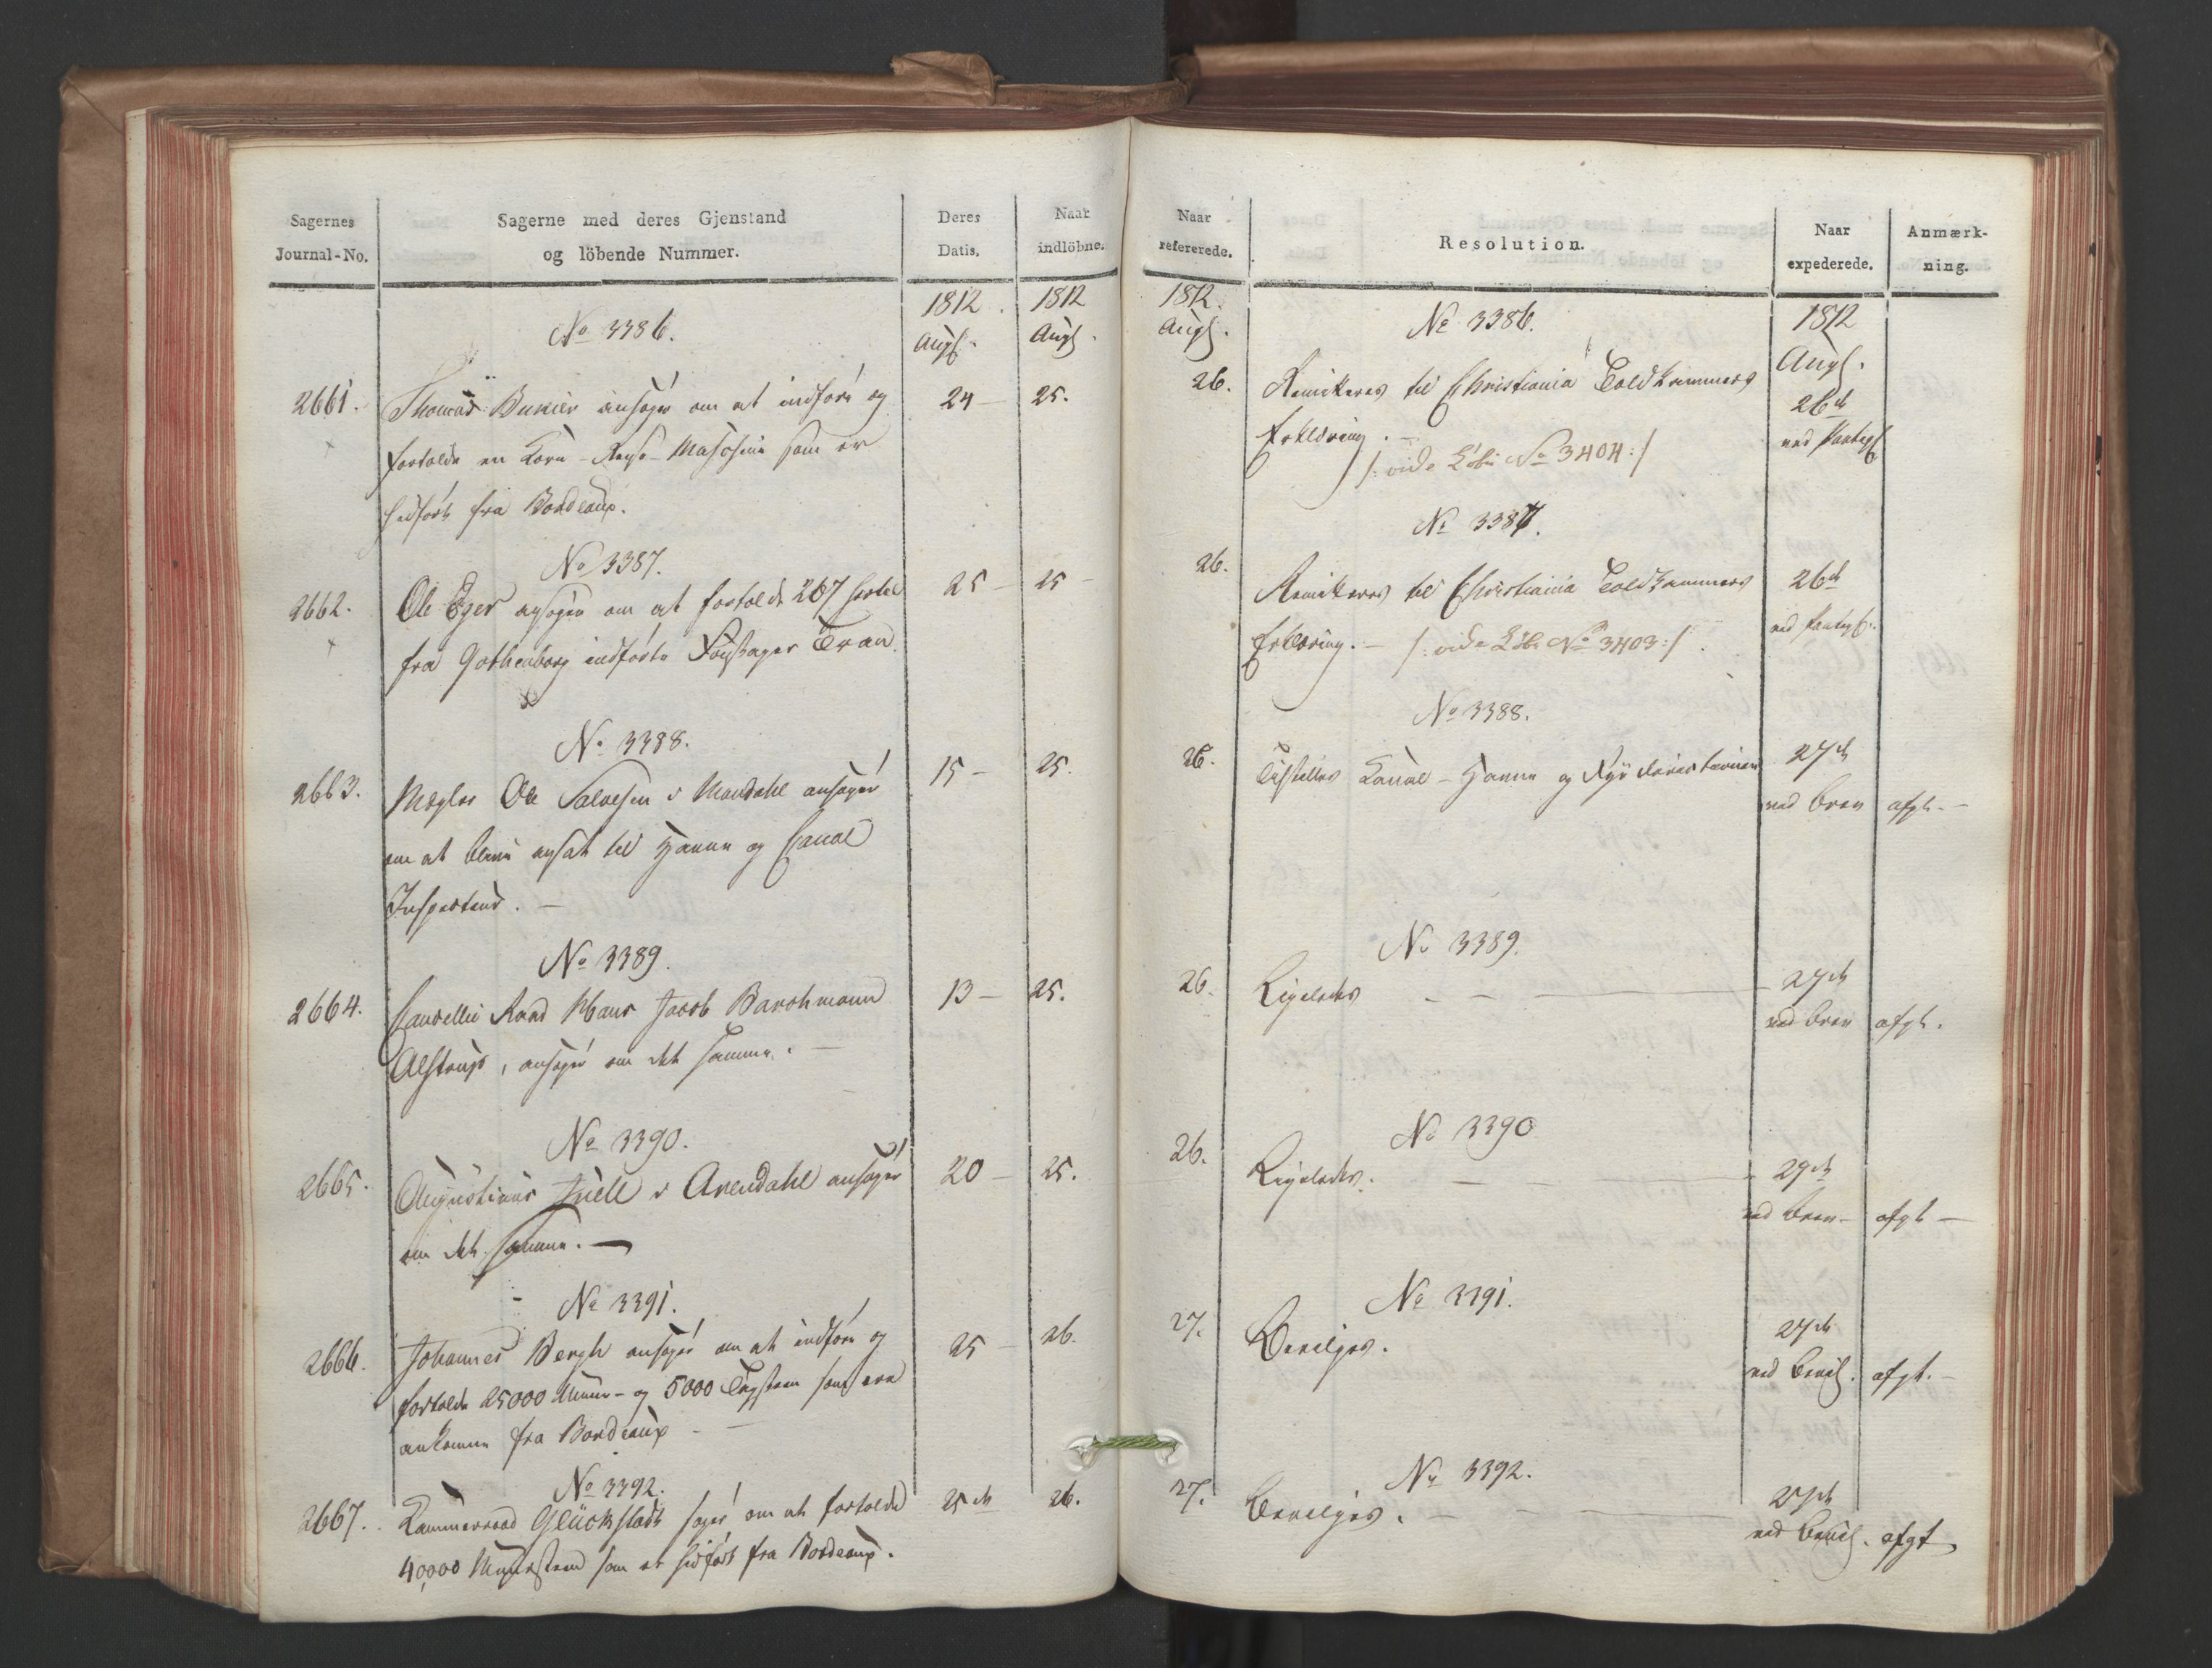 Sagernes
Journal-No.
Sagerne med deres Gjenstand
og löbende Nummer.
Deres
Datis.
Naar
indlöbne.
1812
Augs.
1812
Augs.
No 3386.
2661. Thomas Bukier ansøger om at indføre og 24 25.
fortolde en Korn-Rense-Maschine som er
hidført fra Bordeaux.
No 3387.
2662. Ole Eger ansøger om at fortolde 267 hertil 25 25
fra Gothenborg indførte Foustager Tran.
No 3388.
2663. Mægler Ole Salvesen i Mandahl ansøger 15 25.
om at blive ansat til Havne og Canal
Inspecteur.
No 3389.
2664. Cancellie Raad Hans Jacob Barchmann 13 25.
Alstrup, ansøger om det samme.
No 3390.
2665. Augustinus Juell i Arendahl ansøger 20 25.
om det samme.
No 3391.
2666. Johannes Bergh ansøger om at indføre og 25 26.
fortolde 25000 Muur- og 5000 Tagsteen som ere
ankomne fra Bordeaux
No 3392.
2667. Kammerraad Glückstadt søger om at fortolde 25de 26.
40,000 Muursteen som er hidført fra Bordeaux.
Naar
refererede.
Resolution.
Naar
expederede.
Anmærk-
ning.
1812.
Augs.
1812
Augs.
No 3386.
26. Remitteres til Christiania Toldkammers 26de
Erklæring. ved Paategs
/: vide Løbe No 3404:/
No 3387.
26. Remitteres til Christiania Toldkammers 26de
Erklæring. - /: vide Løbe No 3403:/ ved Paategs.
No 3388.
26. Tilstilles Canal-Havne og Fyr Directionen 27de
ved Brev afgt.
No 3389.
26. Ligeledes 27de
ved Brev afgt.
No 3390
26. Ligeledes. 29de
ved Brev afgt
No 3391.
27. Bevilges. 27de
ved Bevils. afgt.
No 3392.
27. Bevilges. 27de
ved Bevils. afgt